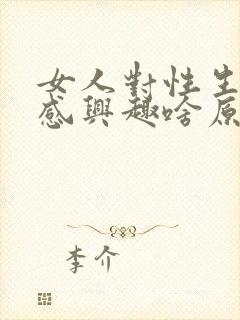 女人對性生
感興趣啥原
李介